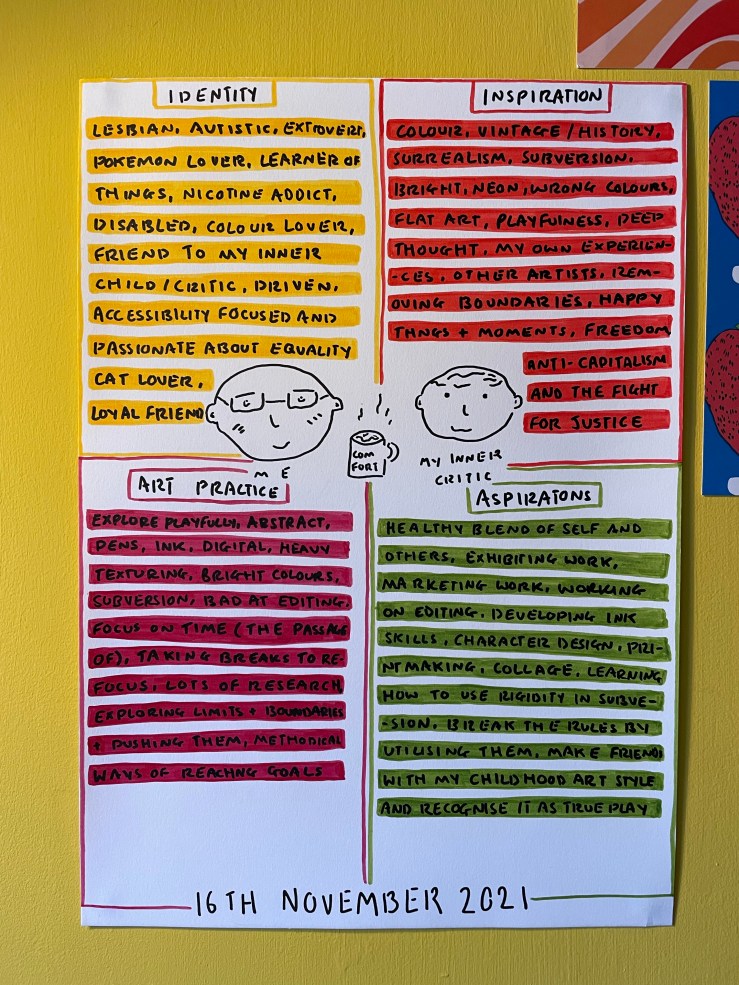 IDENTITY
LESBIAN, AUTISTIC, EXTROVERT,
POKEMON LOVER, LEARNER OF
THINGS, NICOTINE ADDICT,
DISABLED, COLOUR LOVER,
FRIEND TO MY INNER
CHILD/CRITIC, DRIVEN,
ACCESSIBILITY FOCUSED AND
PASSIONATE ABOUT EQUALITY
CAT LOVER,
LOYAL FRIEND
ME
INSPIRATION
COLOUR, VINTAGE/HISTORY,
SURREALISM, SUBVERSION.
BRIGHT, NEON, WRONG COLOURS,
FLAT ART, PLAYFULNESS, DEEP
THOUGHT, MY OWN EXPERIEN-
-CES, OTHER ARTISTS, REM-
OVING BOUNDARIES, HAPPY
THNGS + MOMENTS, FREEDOM
ANTI-CAPITALISM
AND THE FIGHT
FOR JUSTICE
COM
FORT
MY INNER
CRITIC
ART PRACTICE
EXPLORE PLAYFULLY, ABSTRACT,
PENS, INK, DIGITAL, HEAVY
TEXTURING, BRIGHT COLOURS,
SUBVERSION, BAD AT EDITING.
FOCUS ON TIME (THE PASSAGE
OF), TAKING BREAKS TO RE-
FOCUS, LOTS OF RESEARCH
EXPLORING LIMITS + BOUNDARIES
+ PUSHING THEM, METHODICAL
WAYS OF REACHNG GOALS
ASPIRATONS
HEALTHY BLEND OF SELF AND
OTHERS, EXHIBITING WORK,
MARKETING WORK, WORKING
ON EDITING, DEVELOPING INK
SKILLS, CHARACTER DESIGN, PRI-
NTMAKING, COLLAGE, LEARNING
HOW TO USE RIGIDITY IN SUBVE-
-SION, BREAK THE RULES BY
UTILISING THEM, MAKE FRIENDS
WITH MY CHILDHOOD ART STYLE
AND RECOGNISE IT AS TRUE PLAY
16TH NOVEMBER 2021